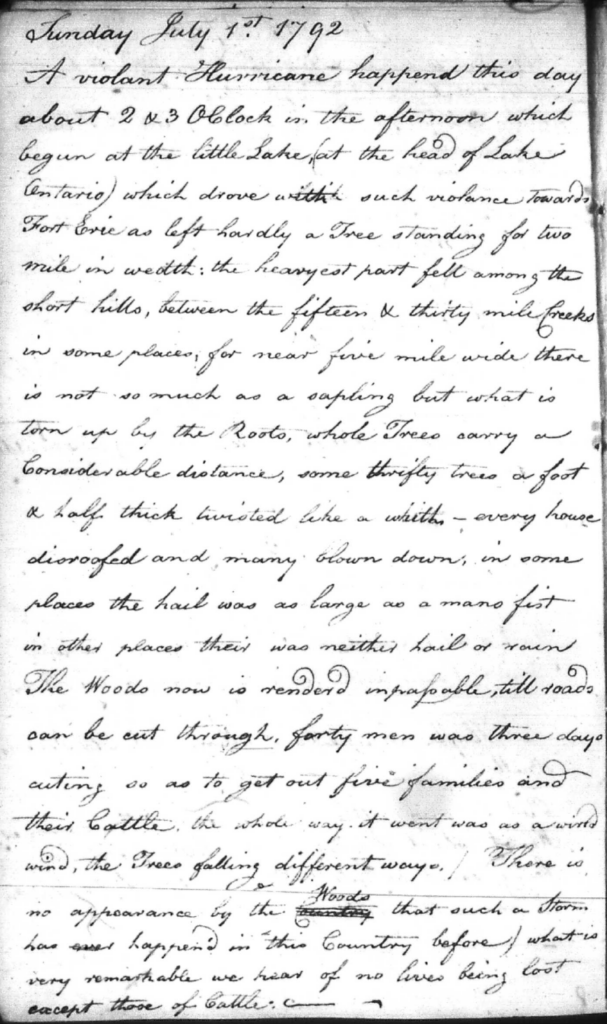 Sunday July 1st 1792
A violant Hurricane happend this day
about 2 & 3 OClock in the afternoon which
begun at the little Lake, (at the head of Lake
Ontario) which drove with such violance towards
Fort Erie as left hardly a Tree standing for two
mile in wedth: the heavyest part fell among the
short hills, between the fifteen & thirty mile Creeks
in some places, for near five mile wide there
is not so much as a sapling but what is
torn up by the Roots, whole Trees carry a
Considerable distance, some thrifty trees a foot
& half thick twisted like a whith - every house
disroofed and many blown down, in some
places the hail was as large as a mans fist
in other places their was neither hail or rain
The Woods now is renderd inpassable, till roads
can be cut through, forty men was three days
cuting so as to get out five families and
their Cattle. the whole way it went was as a
wind, the Trees falling different ways. / There is
no appearance by the Woods country that such a Storm
has ever happend in this Country before) what is
very remarkable we hear of no lives being lost
except those of Cattle: